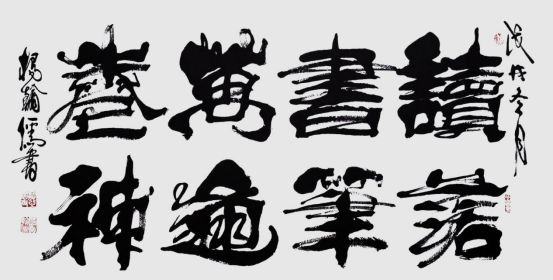 戊戌冬月
讀書萬卷
落筆通神
楊儒書